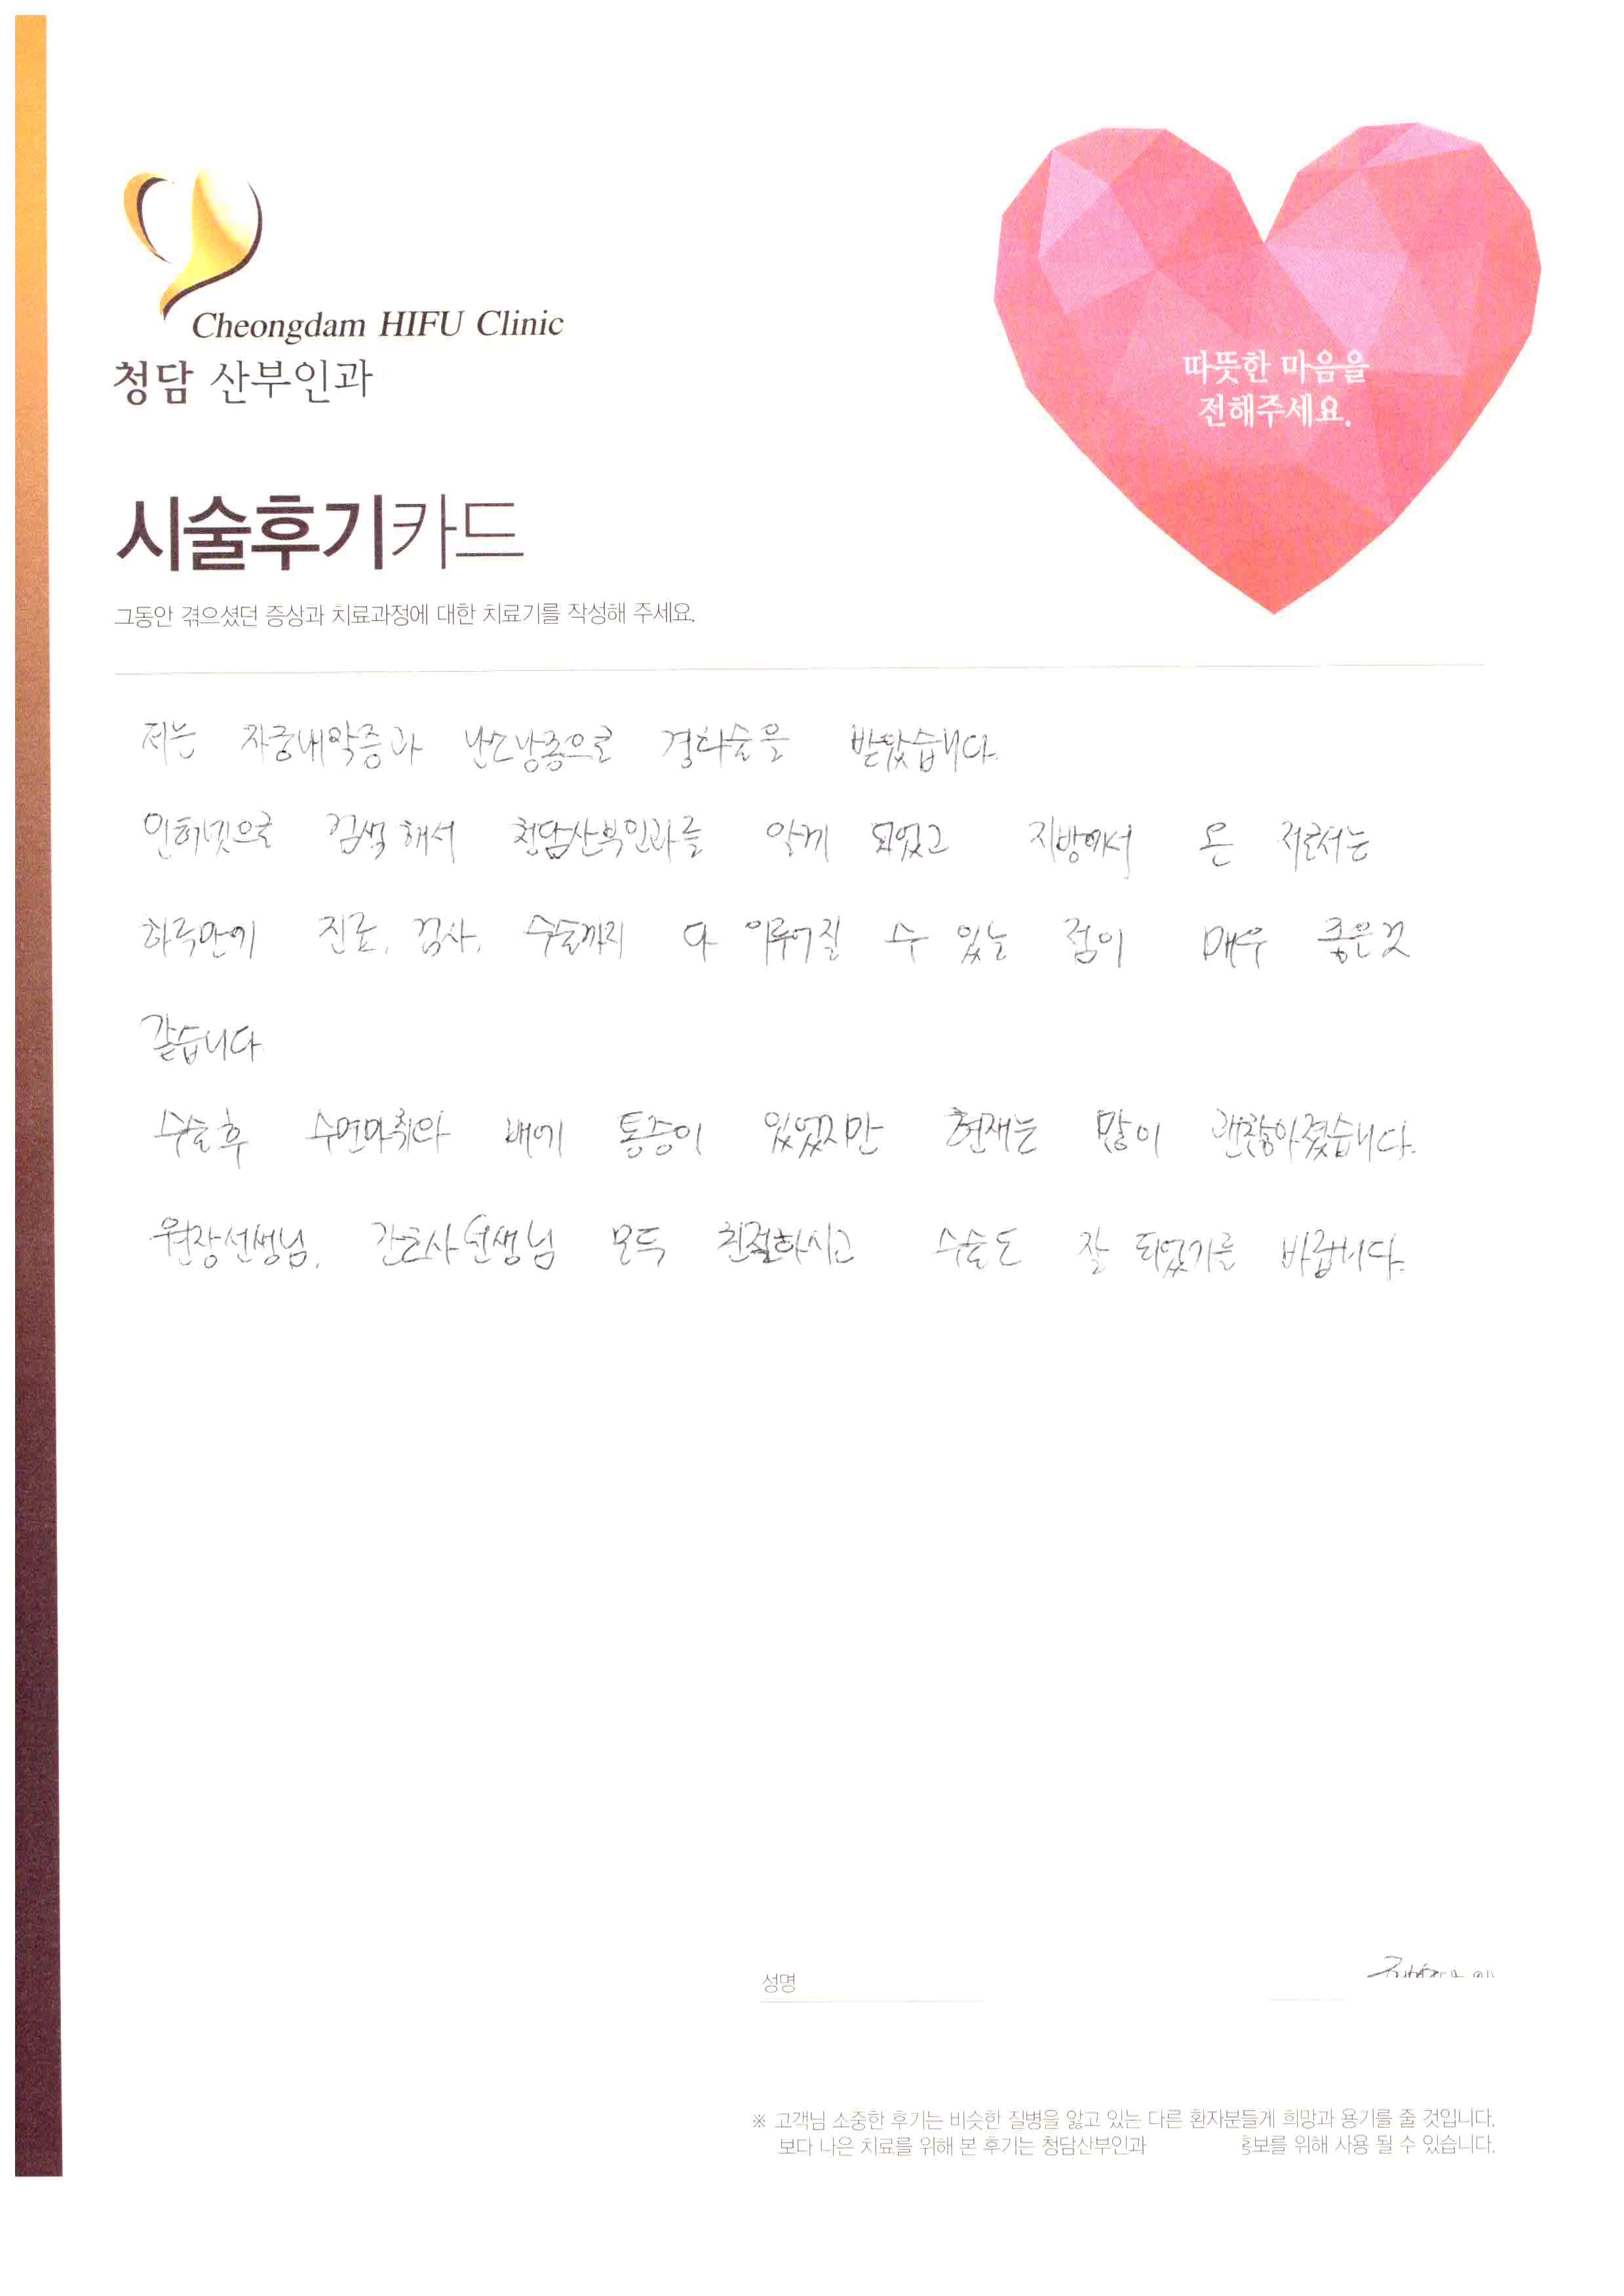 Cheongdam HIFU Clinic
청담 산부인과
따뜻한 마음을
전해주세요.
시술후기카드
그동안 겪으셨던 증상과 치료과정에 대한 치료기를 작성해 주세요.
저는 자궁내막증과 난소낭종으로 경화술을 받았습니다.
인터넷으로 검색해서 청담산부인과를 알게 되었고 지방에서 온 저로서는
하루만에 진료, 검사, 수술까지 다 이루어질 수 있는 점이 매우 좋은것
같습니다
수술후 수면마취와 배에 통증이 있었지만 현재는 많이 괜찮아졌습니다.
원장선생님, 간호사선생님 모두 친절하시고 수술도 잘 되었기를 바랍니다.
성명
※ 고객님 소중한 후기는 비슷한 질병을 앓고 있는 다른 환자분들게 희망과 용기를 줄 것입니다.
보다 나은 치료를 위해 본 후기는 청담산부인과 홍보를 위해 사용 될 수 있습니다.